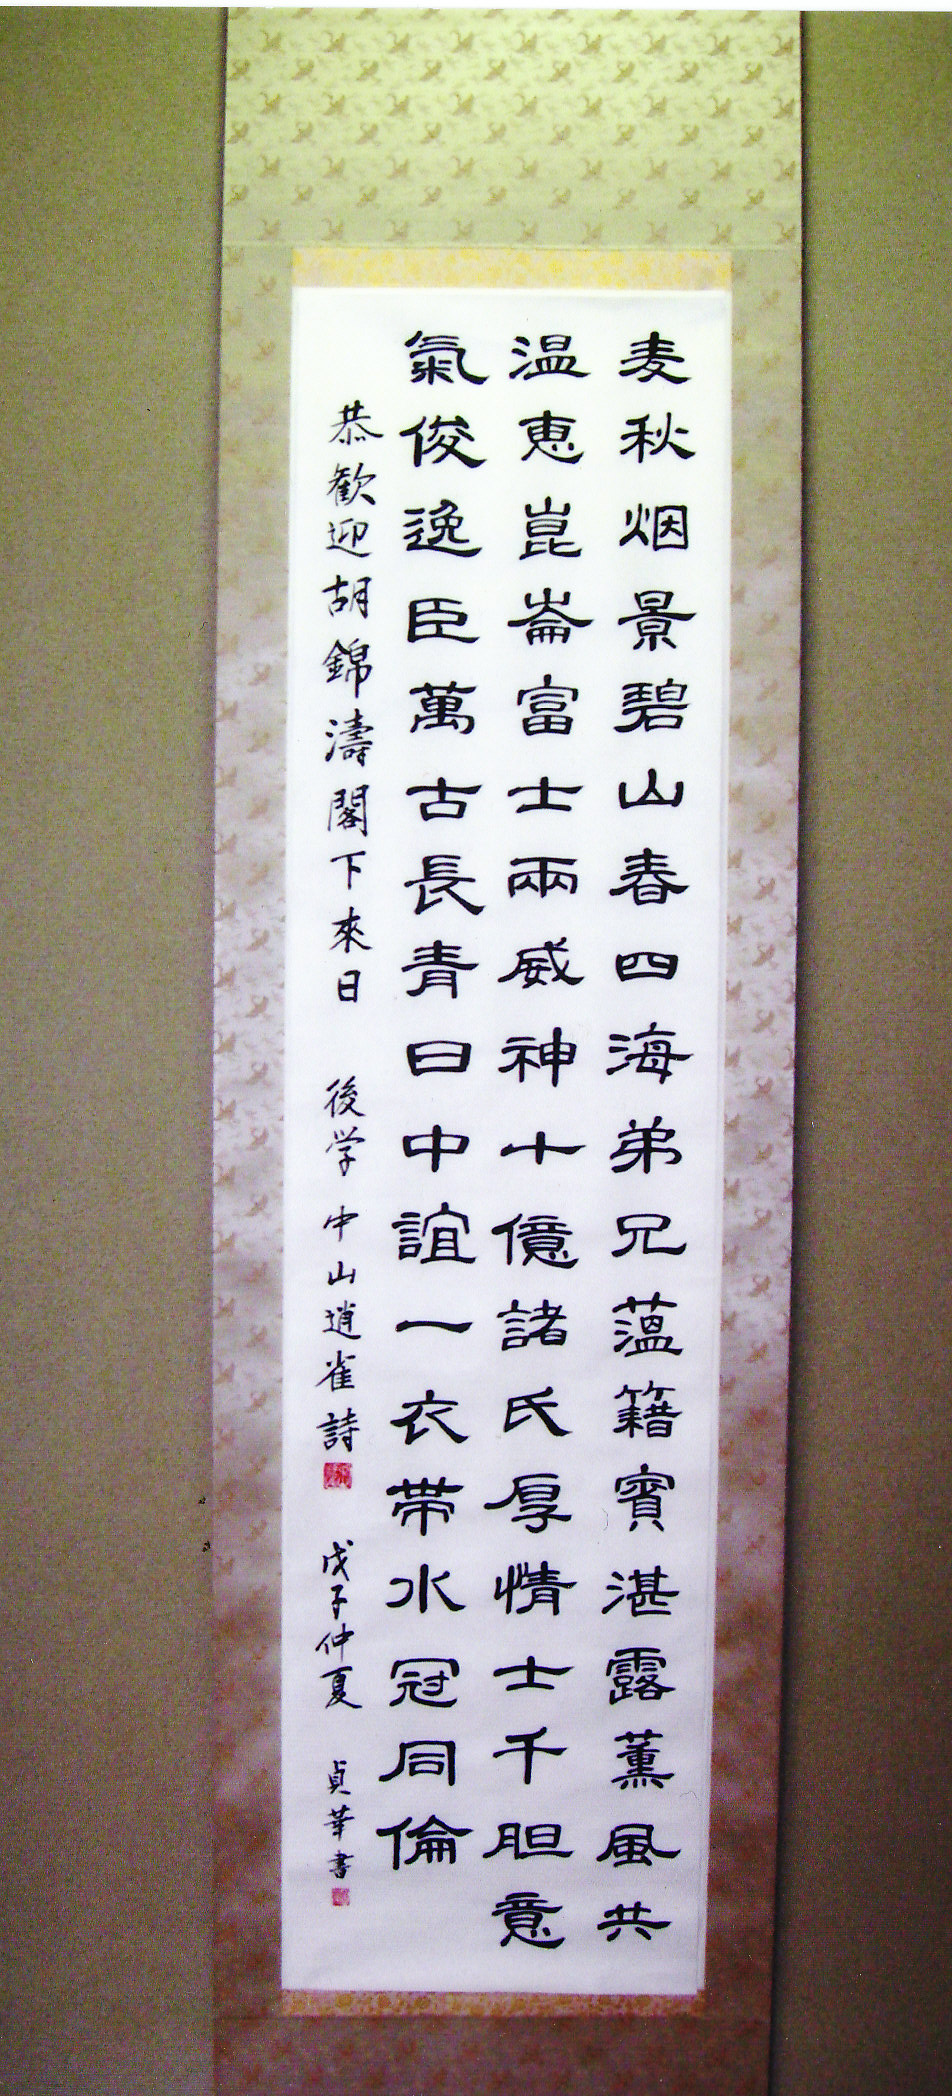 麦秋烟景碧山春四海弟兄薀籍賓湛露薫風共
温恵崑崙富士兩威神十億諸氏厚情士千胆意
氣俊逸臣萬古長青日中誼一衣帶水冠同倫
恭歓迎胡錦濤閣下來日 後学中山逍雀詩 戊子仲夏 貞華書